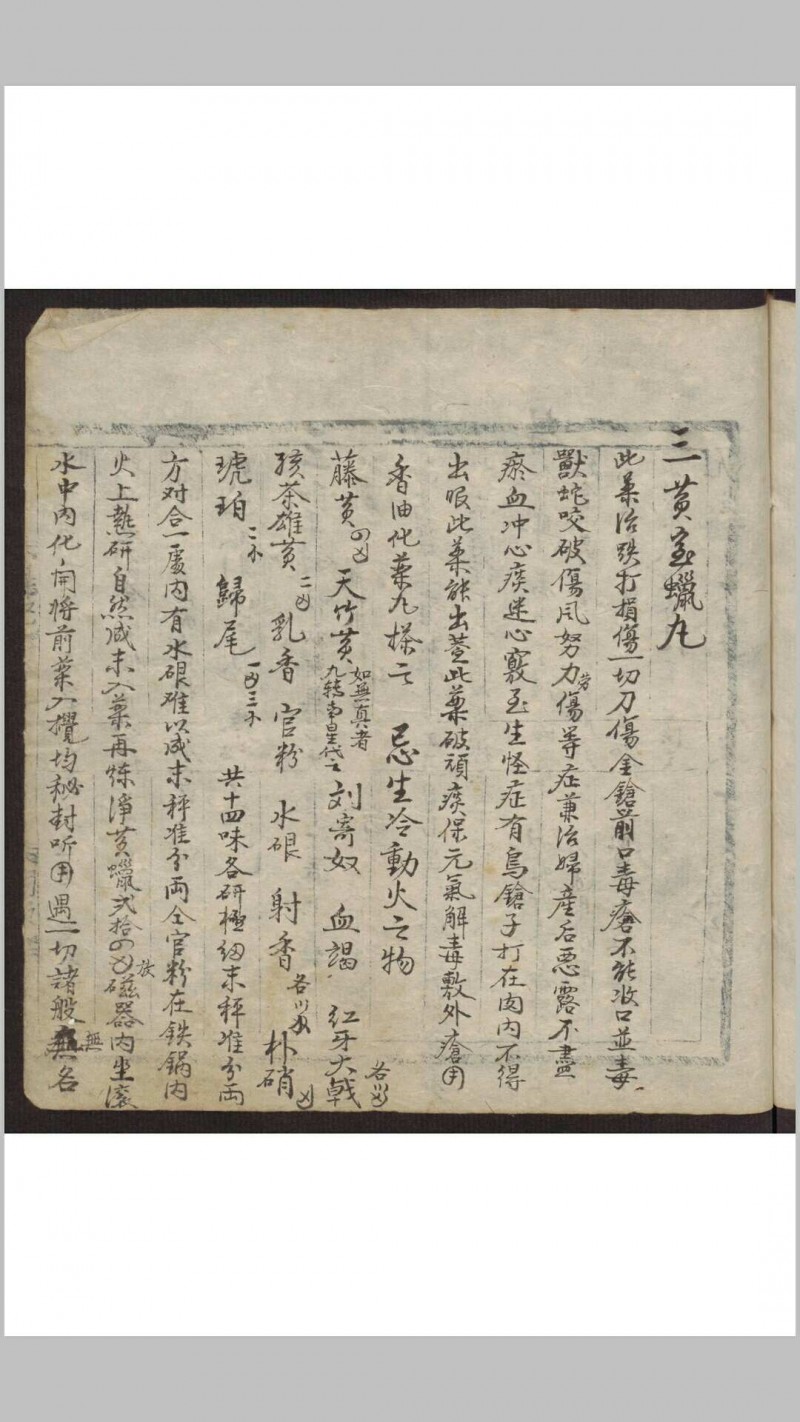 三黄宝蠟丸
此药治跌打損傷一切刀傷金鎗前口毒瘡不能收口並毒
獸蛇咬破傷風努力勞傷等症兼治婦產后悪露不盡
瘀血冲心痰迷心竅至生怪症有鳥鎗子打在肉内不得
出 此药能出 此药破頑痰保元氣解毒敷外瘡用
香油化药丸搽之 忌生冷動火之物
藤黄〤刄 天竹黄如無真者九轉南星代之 刘寄奴 血竭 红牙大戟各〣刄
孩茶雄黄二刄 乳香 官粉 水硍 射香各〣 朴硝刄
琥珀二小 歸尾一刄三小 共十四味各研極细末秤准分両
方对合一處内有水硍难以成末秤准分両仝官粉在铁锅内
火上熱研自然成末入药再炼淨黄蠟弍拾〤刄放磁器内坐滚
水中内化開将前药入攪均秘封听用遇一切諸般無名